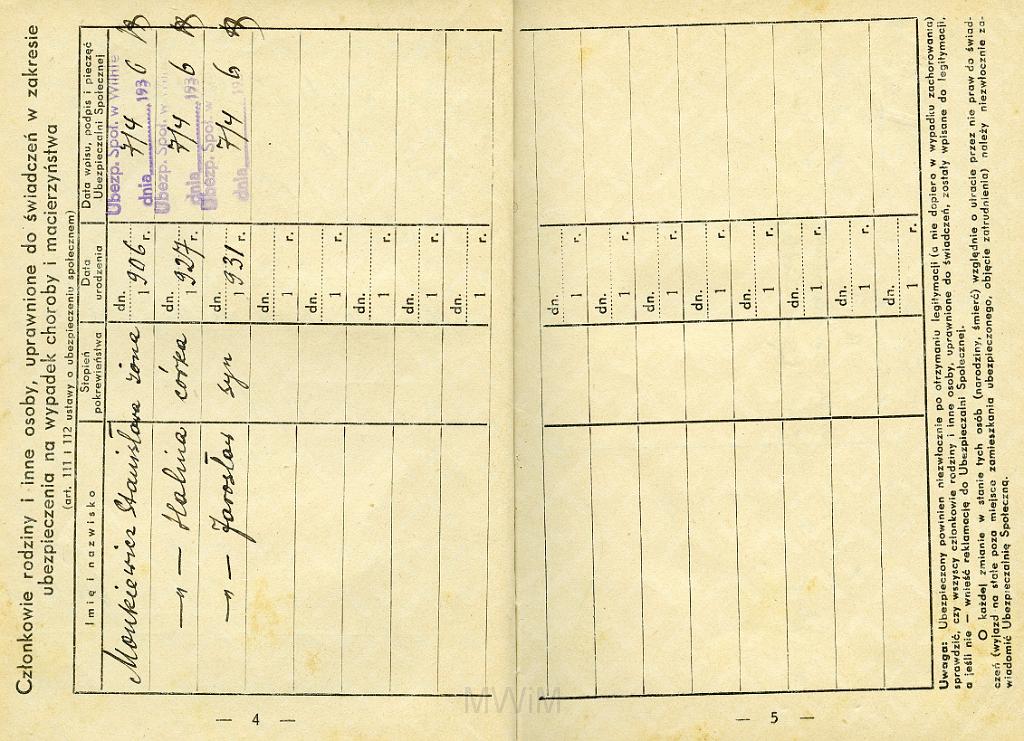 Członkowie rodziny i inne osoby, uprawnione do świadczeń w zakresie
ubezpieczenia na wypadek choroby i macierzyństwa
(art. 111 i 112 ustawy o ubezpieczeniu społecznem)
Imię i nazwisko
Stopień
pokrewieństwa
Data
urodzenia
Data wpisu, podpis i pieczęć
Ubezpieczalni Społecznej
Monkiewicz Stanisława żona dn. 1906 r. Ubezp. Społ. w Wilnie dnia 7/4 1936
—„— Halina córka dn. 1927 r. Ubezp. Społ. w dnia 7/4 1936
—„— Jarosław syn dn. 1931 r. Ubezp. Społ. w dnia 7/4 1936
dn. 1 r.
dn. 1 r.
dn. 1 r.
dn. 1 r.
dn. 1 r.
— 4 —
dn. 1 r.
dn. 1 r.
dn. 1 r.
dn. 1 r.
dn. 1 r.
dn. 1 r.
dn. 1 r.
dn. 1 r.
Uwaga: Ubezpieczony powinien niezwłocznie po otrzymaniu legitymacji (a nie dopiero w wypadku zachorowania)
sprawdzić, czy wszyscy członkowie rodziny i inne osoby, uprawnione do świadczeń, zostały wpisane do legitymacji,
a jeśli nie — wnieść reklamację do Ubezpieczalni Społecznej.
O każdej zmianie w stanie tych osób (narodziny, śmierć) względnie o utracie przez nie praw do świad-
czeń (wyjazd na stałe poza miejsce zamieszkania ubezpieczonego, objęcie zatrudnienia) należy niezwłocznie za-
wiadomić Ubezpieczalnię Społeczną.
— 5 —
MWiM